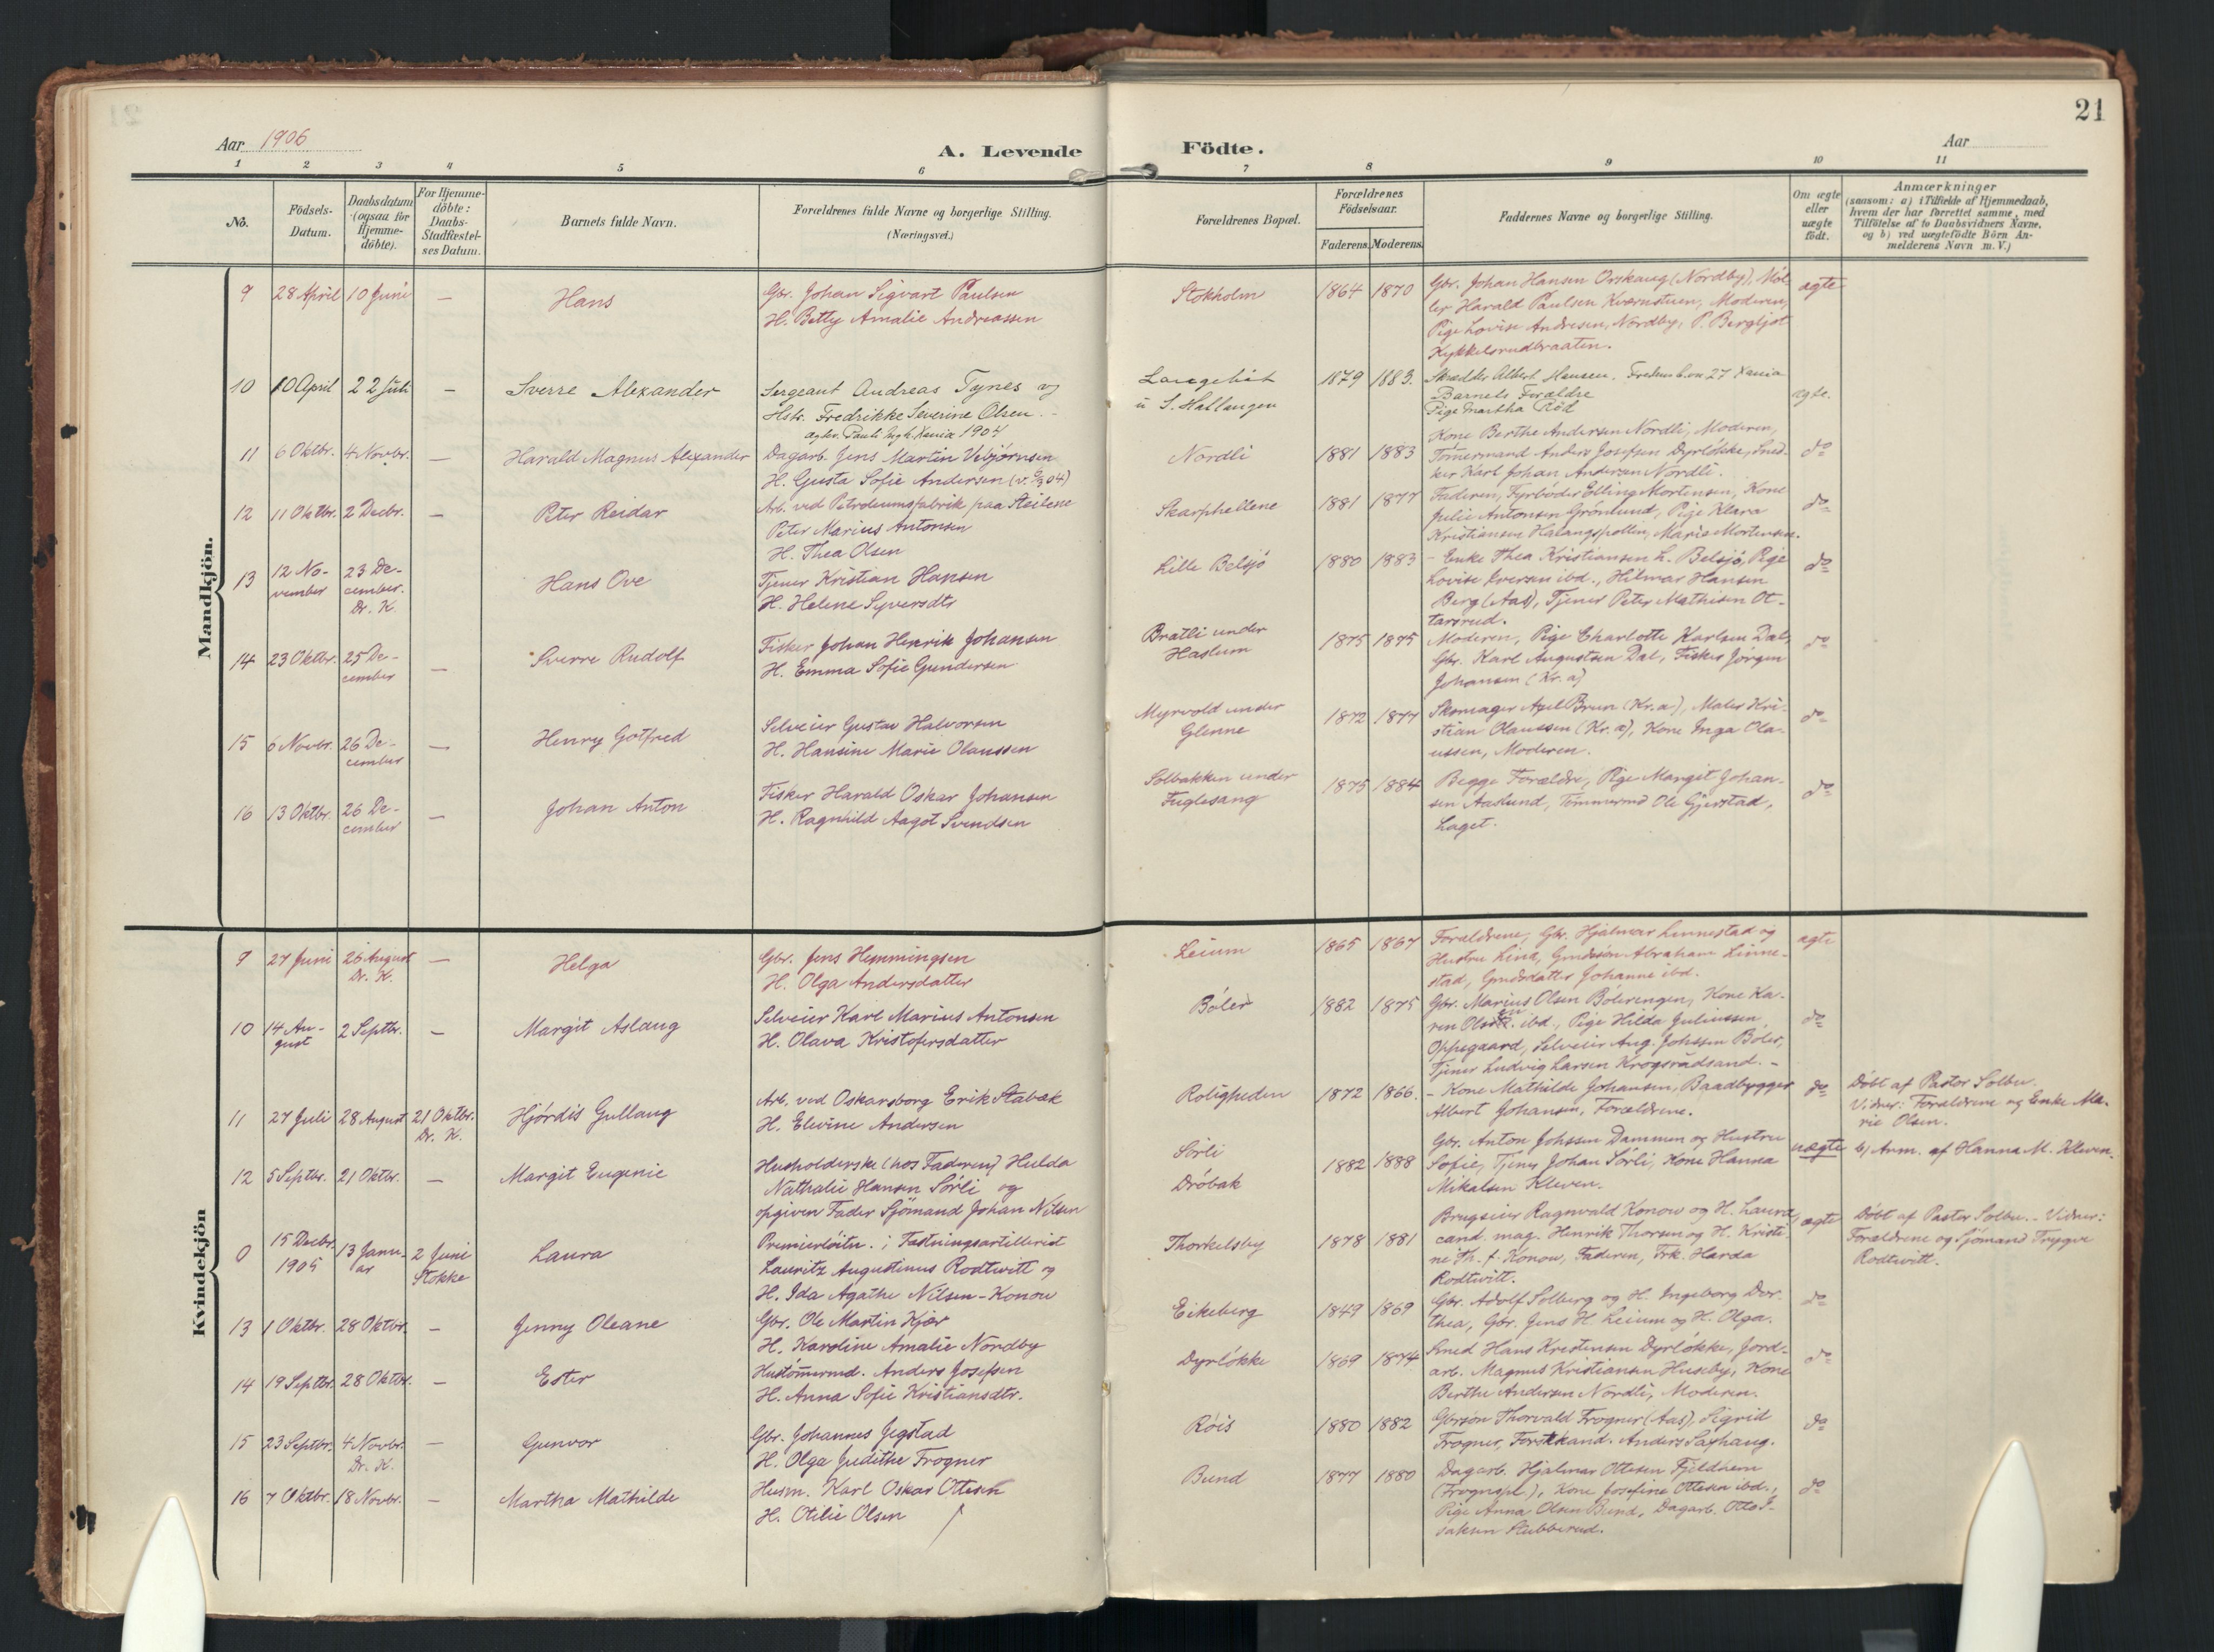 21
Aar 1906
A. Levende Födte.
Aar
1 2 3 4 5 6 7 8 9 10 11
No.
Födsels-
Datum.
Daabsdatum
(ogsaa for
Hjemme-
döbte).
For Hjemme-
döbte:
Daabs-
Stadfestel-
ses Datum.
Barnets fulde Navn.
Forældrenes fulde Navne og borgerlige Stilling.
(Næringsvei.)
Forældrenes Bopæl.
Forældrenes
Födselsaar.
Faderens. Moderens.
Faddernes Navne og borgerlige Stilling.
Om ægte
eller
uægte
födt.
Anmærkninger
(saasom: a) i Tilfælde af Hjemmedaab,
hvem der har forrettet samme, med
Tilföielse af to Daabsvidners Navne,
og b) ved uægtefödte Börn An-
melderens Navn m. V.)
Mandkjön.
9 28 April 10 Juni — Hans
Gbr. Johan Sigvart Paulsen
H. Betty Amalie Andreassen
Stokholm 1864 1870
Gbr. Johan Hansen Orskaug (Nordby), Möl-
ler Harald Paulsen Kværnstuen, Moderen,
Pige Lovise Andresen, Nordby, P. Bergljot
Kykkelsrudbraaten.
ægte
10 10 April 22 Juli — Sverre Alexander
Sergeant Andreas Tynes og
Hstr. Fredrikke Severine Olsen.
agtev. Pauli mgh. Xania 1904
Langebåt
u S. Hallangen
1879 1883.
Skrædder Albert Hansen. 27 Xania
Barnets Forældre
Pige Martha Röd
ægte.
11 6 Oktbr. 4 Novbr. — Harald Magnus Alexander
Dagarb. Jens Martin Vebjörnsen
H. Gusta Sofie Andersen (v. 04)
Nordli 1881 1883
Kone Berthe Andersen Nordli, Moderen,
Tömermand Anders Josefsen Dyrlökke, Sned-
ker Karl Johan Andersen Nordli.
do
12 11 Oktbr. 2 Decbr. — Peter Reidar
Arb. ved Petroleumsfabrik paa Steilene
Peter Marius Antonsen
H. Thea Olsen
Skarphellene 1881 1877
Faderen, Fyrböder Elling Mortensen, Kone
Julie Antonsen Grönlund, Pige Klara
Kristiansen Halangspollen, Marie Mortensen.
do
13 12 No-
vember
23 De-
cember.
Dr. K.
Hans Ove
Tjener Kristian Hansen
H. Helene Syversdtr
Lille Belsjö 1880 1883
- Enke Thea Kristiansen L. Belsjö, Pige
Lovise Iversen ibd., Hilmar Hansen
Berg (Aas), Tjener Peter Mathisen Ot-
tarsrud.
do
14 23 Oktbr. 25 De-
cember
— Sverre Rudolf
Fisker Johan Henrik Johansen
H. Emma Sofie Gundersen
Bratli under
Haslum
1875 1875
Moderen, Pige Charlotte Karlsen Dal,
Gbr. Karl Augustsen Dal, Fisker Jörgen
Johansen (Kr.a)
do
15 6 Novbr. 26 De-
cember
— Henry Gotfred
Selveier Gustav Halvorsen
H. Hansine Marie Olaussen
Myrvold under
Glenne
1872 1877
Skomager Axel Brun (Kr.a), Maler Kri-
stian Olaussen (Kr.a), Kone Inga Ola-
ussen, Moderen.
do
16 13 Oktbr. 26 De-
cember
— Johan Anton
Fisker Harald Oskar Johansen
H. Ragnhild Aagot Svendsen
Solbakken under
Fuglesang
1875 1884
Begge Forældre, Pige Margit Johan-
sen Aaslund, Tömmermd Ole Gjerstad,
Laget.
do
Kvindekjön
9 27 Juni 26 August
Dr. K.
— Helga
Gbr. Jens Hemmingsen
H. Olga Andersdatter
Leium 1865 1867
Forældrene, Gbr. Hjalmar Linnestad og
Hustru Lina, Gmdssön Abraham Linne-
stad, Gmdsdatter Johanne ibd.
ægte
10 14 Au-
gust
2 Septbr. — Margit Aslaug
Selveier Karl Marius Antonsen
H. Olava Kristofersdatter
Böler 1882 1875
Gbr. Marius Olsen Bölerengen, Kone Ka-
ren Olsen ibd., Pige Hilda Juliussen
Oppegaard, Selveier Aug. Johssen Böler,
Tjener Ludvig Larsen Krogsrådsand. -
do
11 27 Juli 28 August 21 Oktbr.
Dr. K.
Hjördis Gullaug
Arb. ved Oskarsborg Erik Stabæk
H. Elevine Andersen
Roligheden 1872 1866.
- Kone Mathilde Johansen, Baadbygger
Albert Johansen, Forældrene.
do
Döbt af Pastor Solbu.
Vidner: Forældrene og Enke Ma-
rie Olsen.
12 5 Septbr. 21 Oktbr. — Margit Eugenie
Husholderske (hos Faderen) Hulda
Nathalie Hansen Sörli og
opgiven Fader Sjömand Johan Nilsen
Sörli
Dröbak
1882 1888
Gbr. Anton Johssen Dammen og Hustru
Sofie, Tjener Johan Sörli, Kone Hanna
Mikalsen Kleven.
uægte
b) Anm. af Hanna M. Kleven.
0 15 Decbr.
1905
13 Janu-
ar
2 Juni
Stokke
Laura
Premierlöitn. i Fæstningsartilleriet
Lauritz Augustinus Rodtwitt og
H. Ida Agathe Nilsen-Konow
Thorkelsby 1878 1881
Brugseier Ragnvald Konow og H. Laura,
cand. mag. Henrik Thorsen og H. Kristi-
ne Th. f. Konow, Faderen, Frk. Harda
Rodtwitt.
ægte
Döbt af Pastor Solbu. - Vidner:
Forældrene og Sjömand Trygve
Rodtwitt.
13 1 Oktbr. 28 Oktbr. — Jenny Oleane
Gbr. Ole Martin Kjær
H. Karoline Amalie Nordby
Eikeberg 1849 1869
Gbr. Adolf Solberg og H. Ingeborg Dor-
thea, Gbr. Jens H. Leium og H. Olga.
do
14 19 Septbr. 28 Oktbr. — Ester
Hustömermd. Anders Josefsen
H. Anna Sofie Kristiansdtr.
Dyrlökke 1869 1874
Smed Hans Kristensen Dyrlökke, Jord-
arb. Magnus Kristiansen Huseby, Kone
Berthe Andersen Nordli, Moderen.
do
15 23 Septbr. 4 Novbr.
Dr. K.
— Gunvor
Gbr. Johannes Jegstad
H. Olga Judithe Frogner
Röis 1880 1882
Gbrsön Thorvald Frogner (Aas), Sigrid
Frogner, Forstkand. Anders Saxhaug.
do
16 7 Oktbr. 18 Novbr. — Martha Mathilde
Husm. Karl Oskar Ottesen
H. Otilie Olsen
Bund 1877 1880
Dagarb. Hjalmar Ottesen Fjeldheim
(Frognspl.), Kone Josefine Ottesen ibd.,
Pige Anna Olsen Bund, Dagarb. Otto I-
saksen Stubberud.
do